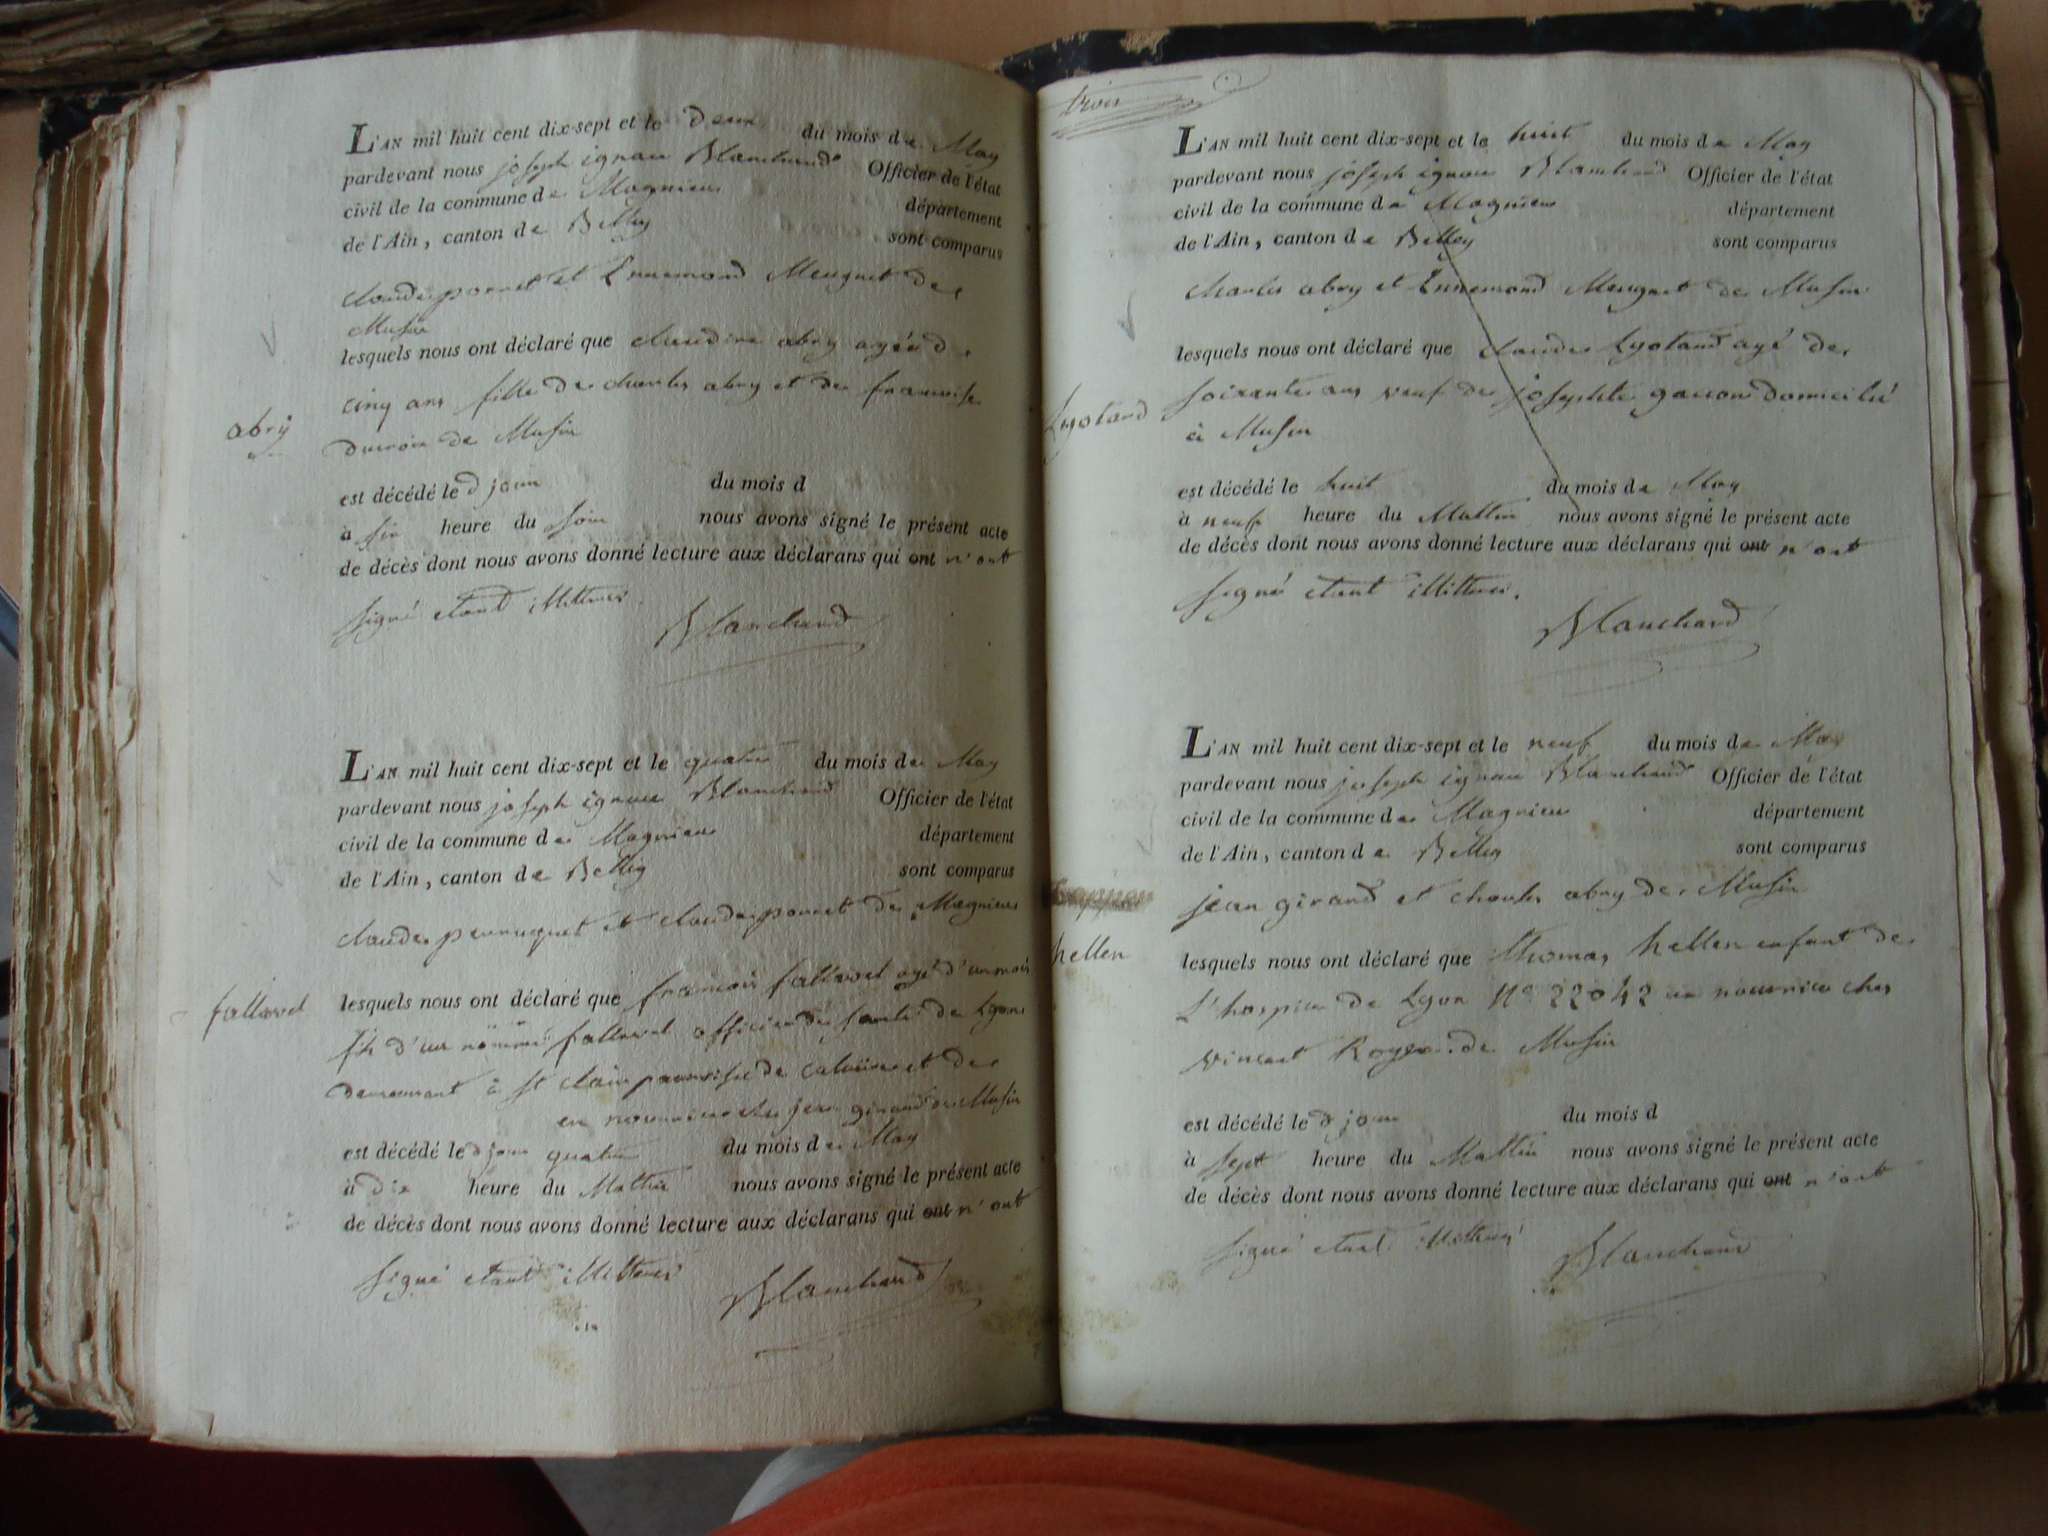 L'AN mil huit cent dix-sept et le deux du mois de May
pardevant nous joseph ignace Blanchard Officier de l'état
civil de la commune de Magnieu département
de l'Ain, canton de Belley sont comparus
claude ponnet et Ennemond Meuguet de
Musin
lesquels nous ont déclaré que claudine abry agée de
cinq ans fille de charles abry et de francoise
abry
ducroix de Musin
est décédé le d jour du mois d
à six heure du soir nous avons signé le présent acte
de décès dont nous avons donné lecture aux déclarans qui ont n'ont
signé etant illitteres
Blanchard
L'AN mil huit cent dix-sept et le quatre du mois de May
pardevant nous joseph ignace Blanchard Officier de l'état
civil de la commune de Magnieu département
de l'Ain, canton de Belley sont comparus
claude perruquet et claude ponnet de Magnieu
fallavel
lesquels nous ont déclaré que francois fallavel agé d'un mois
fils d'un nommé fallavel officier de santé de Lyon
demeurant à st clair de et de
en nourrice chez jean girand de Musin
est décédé le d jour quatre du mois de May
à dix heure du Mattin nous avons signé le présent acte
de décès dont nous avons donné lecture aux déclarans qui ont n'ont
signé etant illitteres
Blanchard
trois
L'AN mil huit cent dix-sept et le huit du mois de May
pardevant nous joseph ignace Blanchard Officier de l'état
civil de la commune de Magnieu département
de l'Ain, canton de Belley sont comparus
charles abry et Ennemond Meuguet de Musin
lesquels nous ont déclaré que claude Lyotard agé de
Lyotard
soixante ans veuf de josephte domicilié
à Musin
est décédé le huit du mois de May
à neuf heure du Mattin nous avons signé le présent acte
de décès dont nous avons donné lecture aux déclarans qui ont n'ont
signé etant illitteres.
Blanchard
L'AN mil huit cent dix-sept et le neuf du mois de May
pardevant nous joseph ignace Blanchard Officier de l'état
civil de la commune de Magnieu département
de l'Ain, canton de Belley sont comparus
jean girand et charles abry de Musin
hellen
lesquels nous ont déclaré que thomas hellen enfant de
L'hospice de Lyon N° 22042 en nourrice chez
vincent Royer de Musin
est décédé le d jour du mois d
à sept heure du Mattin nous avons signé le présent acte
de décès dont nous avons donné lecture aux déclarans qui ont n'ont
signé etant illitteres
Blanchard